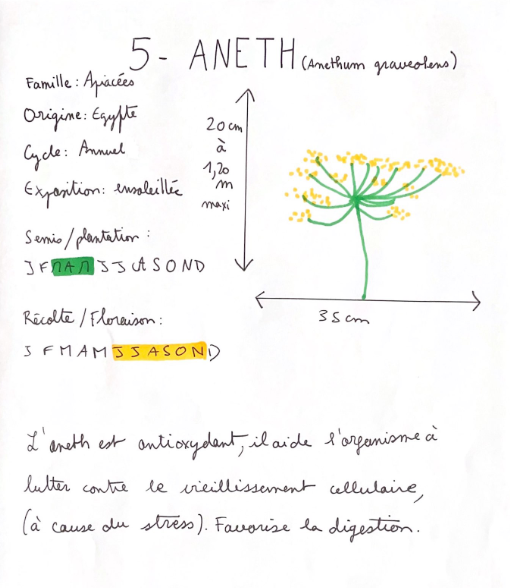 5 - ANETH (Anethum graveolens)
Famille : Apiacées
Origine : Egypte
Cycle : Annuel
Exposition : ensoleillée
20 cm
à
1,20
m
maxi
Semis / plantation :
J F M A M J J A S O N D
35 cm
Récolte / Floraison :
J F M A M J J A S O N D
L'aneth est antioxydant, il aide l'organisme à
lutter contre le vieillissement cellulaire,
(à cause du stress). Favorise la digestion.